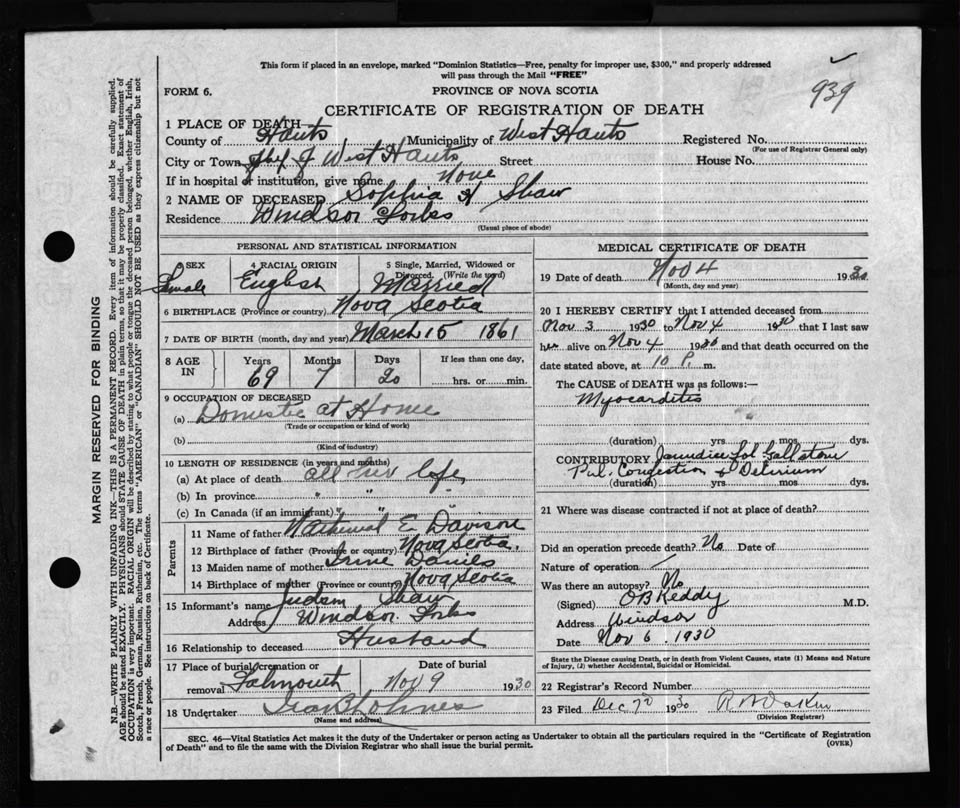 This form if placed in an envelope, marked "Dominion Statistics—Free, penalty for improper use, $300," and properly addressed
will pass through the Mail "FREE"
939
FORM 6.
PROVINCE OF NOVA SCOTIA
CERTIFICATE OF REGISTRATION OF DEATH
1 PLACE OF DEATH—
County of Hants Municipality of West Hants Registered No.
(For use of Registrar General only)
City or Town of West Hants Street House No.
If in hospital or institution, give name None
2 NAME OF DECEASED Sophia A Shaw
Residence Windsor Forks
(Usual place of abode)
PERSONAL AND STATISTICAL INFORMATION
SEX 4 RACIAL ORIGIN 5 Single, Married, Widowed or
Divorced. (Write the word)
Female English Married
6 BIRTHPLACE (Province or country) Nova Scotia
7 DATE OF BIRTH (month, day and year) March 15 1861
8 AGE IN Years Months Days If less than one day,
69 7 20 hrs. or min.
9 OCCUPATION OF DECEASED
(a) Domestic at Home
(Trade or occupation or kind of work)
(b)
(Kind of industry)
10 LENGTH OF RESIDENCE (in years and months)
(a) At place of death all her life
(b) In province " " "
(c) In Canada (if an immigrant) " " "
Parents
11 Name of father E. Davison
12 Birthplace of father (Province or country) Nova Scotia
13 Maiden name of mother
14 Birthplace of mother (Province or country) Nova Scotia
15 Informant's name Judson Shaw
Address Windsor Forks
16 Relationship to deceased Husband
17 Place of burial, cremation or Date of burial
removal Falmouth Nov 9 1930
18 Undertaker
(Name and address)
MEDICAL CERTIFICATE OF DEATH
19 Date of death Nov 4 1930
(Month, day and year)
20 I HEREBY CERTIFY that I attended deceased from
Nov 3 1930 to Nov 4 1930 that I last saw
her alive on Nov 4 1930 and that death occurred on the
date stated above, at 10 P. m.
The CAUSE of DEATH was as follows:—
Myocarditis
(duration) yrs mos dys.
CONTRIBUTORY Jaundice Gallstone
Pul. Congestion & Delirium
(duration) yrs mos dys.
21 Where was disease contracted if not at place of death?
Did an operation precede death? No Date of
Nature of operation
Was there an autopsy? No
(Signed) O B Keddy M.D.
Address Windsor
Date Nov 6. 1930
State the Disease causing Death, or in death from Violent Causes, state (1) Means and Nature
of Injury, (2) whether Accidental, Suicidal or Homicidal.
22 Registrar's Record Number
23 Filed Dec 1930
(Division Registrar)
SEC. 46—Vital Statistics Act makes it the duty of the Undertaker or person acting as Undertaker to obtain all the particulars required in the "Certificate of Registration
of Death" and to file the same with the Division Registrar who shall issue the burial permit.
(OVER)
MARGIN RESERVED FOR BINDING
N.B.—WRITE PLAINLY WITH UNFADING INK—THIS IS A PERMANENT RECORD. Every item of information should be carefully supplied.
AGE should be stated EXACTLY. PHYSICIANS should STATE CAUSE OF DEATH in plain terms, so that it may be properly classified. Exact statement of
OCCUPATION is very important. RACIAL ORIGIN will be described by stating to what people or tongue the deceased person belonged, whether English, Irish,
Scotch, French, German, Russian, Ruthenian, etc. The terms "AMERICAN" or "CANADIAN" SHOULD NOT BE USED as they express citizenship but not
a race or people. See instructions on back of Certificate.